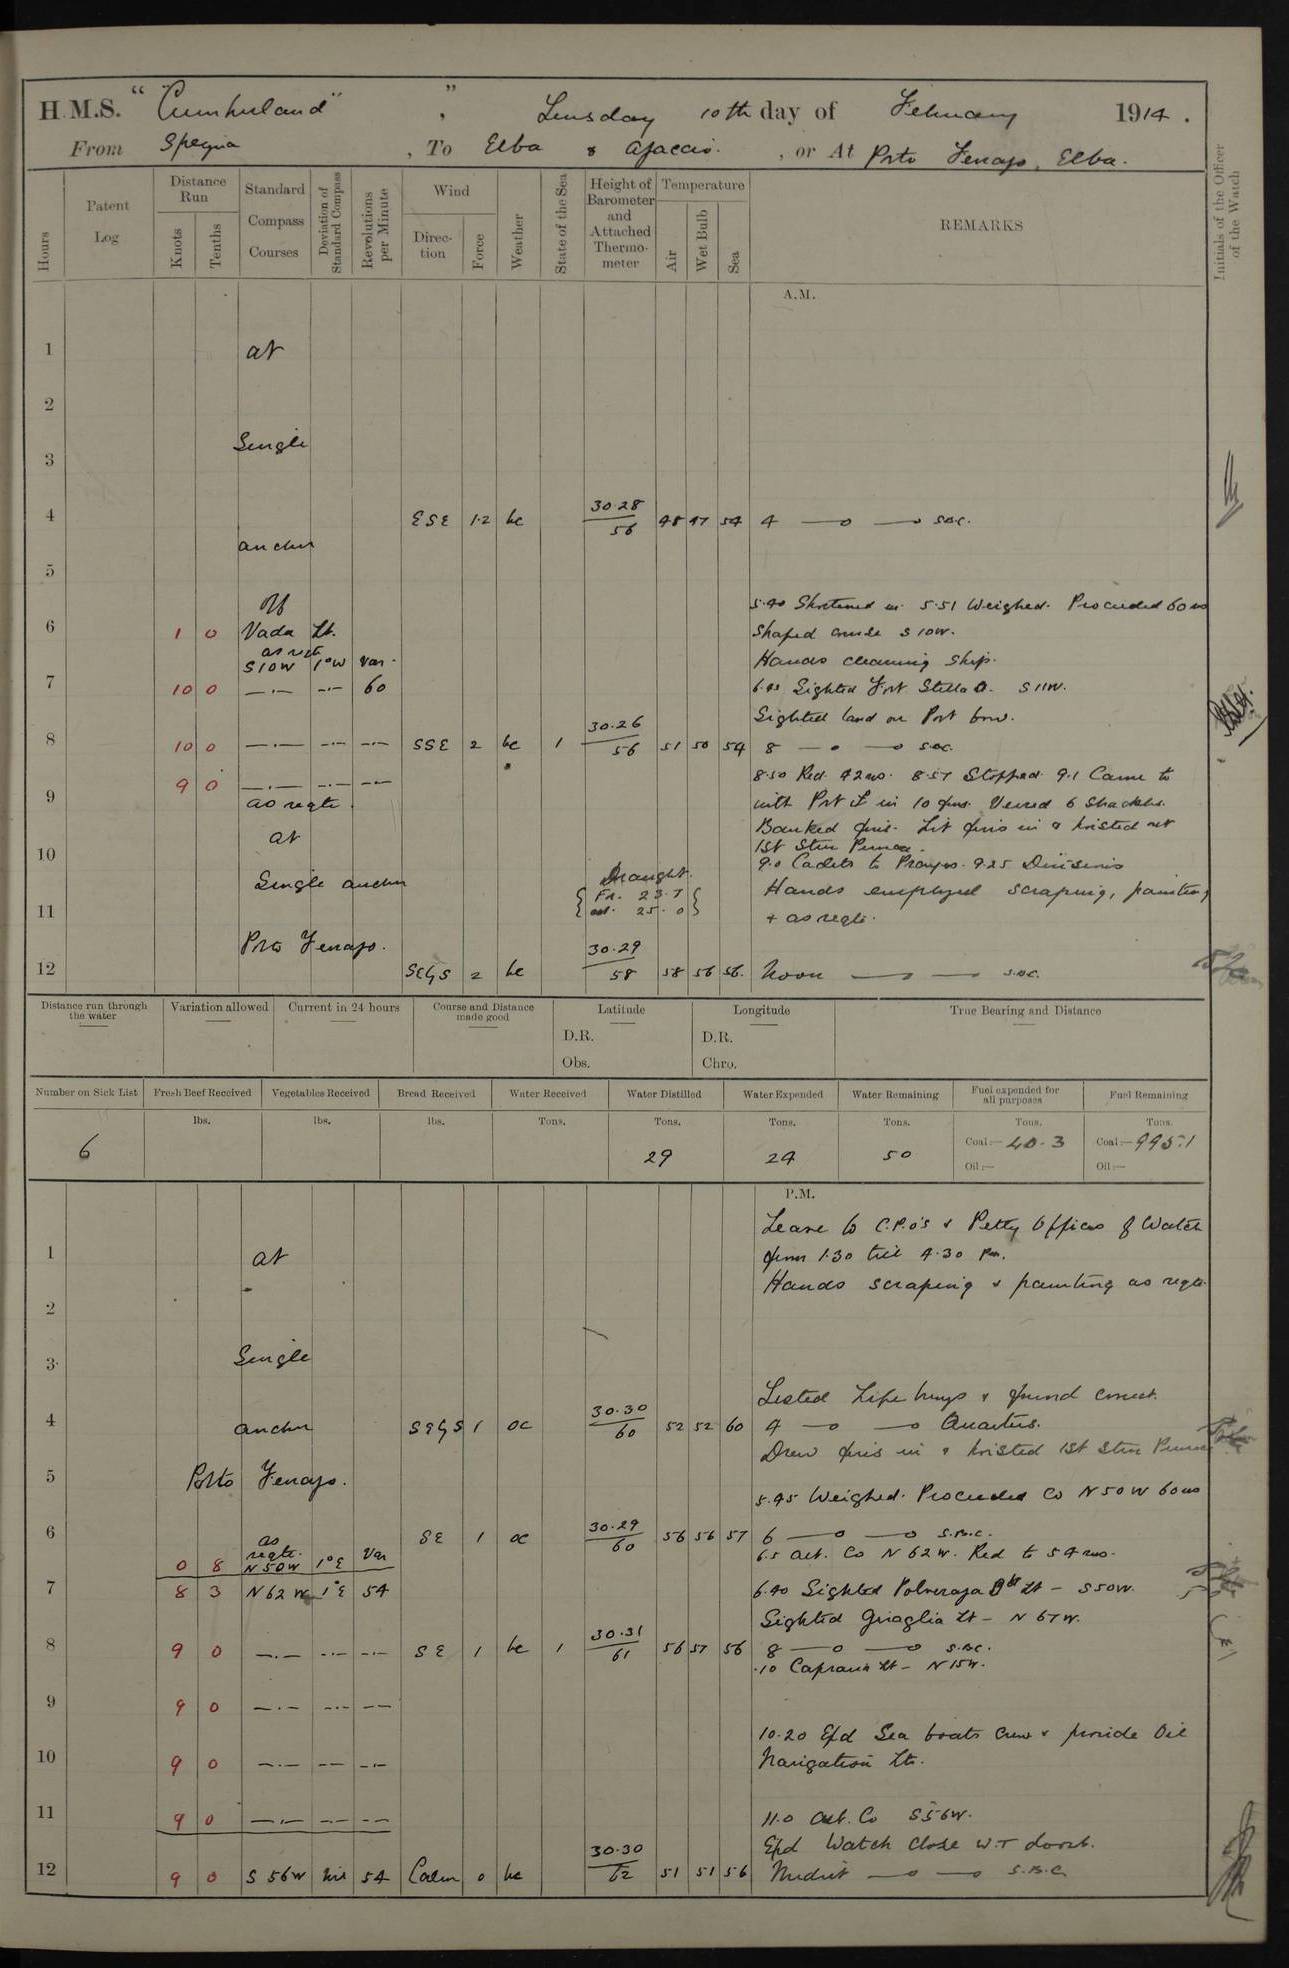 H.M.S. "Cumberland", Tuesday 10th day of February 1914.
From Spezia, To Elba & Ajaccio., or At Porto Ferrajo, Elba.
Hours
Patent Log
Distance Run
Knots
Tenths
Standard Compass Courses
Deviation of Standard Compass
Revolutions per Minute
Wind
Direction
Force
Weather
State of the Sea
Height of Barometer and Attached Thermometer
Temperature
Air
Wet Bulb
Sea
REMARKS
Initials of the Officer of the Watch
A.M.
1 at
2
3 Single
4 ESE 1.2 bc 30.28/56 48 47 54 4 —o —o S.B.C.
anchor
5
off 5.40 Shortened in. 5.51 Weighed. Proceeded 60 revs
6 1 0 Vada Lt. Shaped course S 10W.
as reqte
S10W 1°W Var. Hands cleaning ship.
7 10 0 —.— —.— 60 6.45 Sighted Fort Stella S 11W.
Sighted land on Port bow.
8 10 0 —.— —.— —.— SSE 2 bc 1 30.26/56 51 50 54 8 —o —o S.B.C.
9 0 —.— —.— —.— 8.50 Red. 42 revs. 8.57 Stopped. 9.1 Came to
9 as reqte. with Port in 10 fms. Veered 6 Shackles.
at Banked fires. Lit fires in & hoisted out
10 1st Stm Pinnace.
9.0 Cadets to Prayers. 9.25 Divisions
Single anchor Draught. Hands employed scraping, painting
11 { Fd. 23.7 aft. 25.0 } + as reqte.
Porto Ferrajo.
12 SE'S 2 bc 30.29/58 58 56 56. Noon — — S.B.C.
Distance run through the water
Variation allowed
Current in 24 hours
Course and Distance made good
Latitude
D.R.
Obs.
Longitude
D.R.
Chro.
True Bearing and Distance
Number on Sick List
Fresh Beef Received
Vegetables Received
Bread Received
Water Received
Water Distilled
Water Expended
Water Remaining
Fuel expended for all purposes
Fuel Remaining
lbs. lbs. lbs. Tons. Tons. Tons. Tons. Tons. Tons.
6 29 24 50 Coal:— 40.3 Coal:— 995.1
Oil:— Oil:—
P.M.
Leave to C.P.O's & Petty Officers of Watch
1 at from 1.30 till 4.30 pm.
Hands scraping & painting as reqte.
2
3 Single
Tested Life buoys & found correct.
4 anchor SE'S 1 oc 30.30/60 52 52 60 4 —o —o Quarters.
Drew fires in & hoisted 1st Stm Pinnace
5 Porto Ferrajo.
5.45 Weighed. Proceeded Co N50W 60 revs
6 SE 1 oc 30.29/60 56 56 57 6 —o —o S.B.C.
as reqte.
0 8 N 50W 1°E Var 6.5 Alt. Co N 62 W. Red to 54 revs.
7 8 3 N 62 W 1°E 54 6.40 Sighted Polveraja Lt – S50W.
Sighted Giraglia Lt – N 67W.
8 9 0 —.— —.— —.— SE 1 bc 1 30.31/61 56 57 56 8 —o —o S.B.C.
.10 Capraia Lt – N 15W.
9 9 0 —.— —.— —.—
10.20 Exd Sea boats Crew & provide Oil
10 9 0 —.— —.— —.— Navigation Lts.
11 9 0 —.— —.— —.— 11.0 Alt. Co S56W.
Exd Watch Close W.T doors.
12 9 0 S 56W nil 54 Calm 0 bc 30.30/62 51 51 56 Midnt —o —o S.B.C